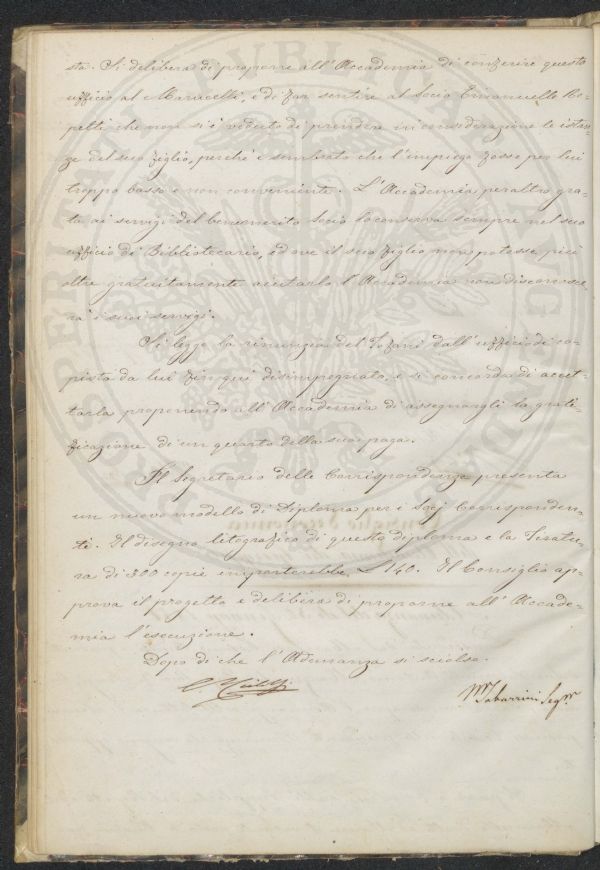 sta. Si delibera di proporre all'Accademia di conferire questo
ufficio al Maracelli, e di far sentire al Socio Emanuelle Re-
petti che non si è veduto di prendere in considerazione le istan-
ze del suo figlio, perché è sembrato che l'impiego fosse per lui
troppo basso e non conveniente. L'Accademia peraltro gra-
ta ai servigi del benemerito Socio lo conserva sempre nel suo
ufficio di Bibliotecario, ed ove il suo figlio non potesse più
oltre gratuitamente aiutarlo, l'Accademia non disconosce
rà i suoi servigi.
Si legge la rinunzia del Tofani dall'ufficio di co-
pista da lui fin qui disimpegnato, e si concorda di accet-
tarla proponendo all'Accademia di assegnargli la grati-
ficazione di un quarto della sua paga.
Il Segretario delle Corrispondenze presenta
un nuovo modello di Diploma per i Socj Corrisponden-
ti. Il disegno litografico di questo diploma e la Tiratu-
ra di 300 copie importerebbe £ 140. Il Consiglio ap-
prova il progetto e delibera di proporne all'Accade-
mia l'esecuzione.
Dopo di che l'Adunanza si sciolse.
C. Ridolfi
M. Tabarrini Seg.